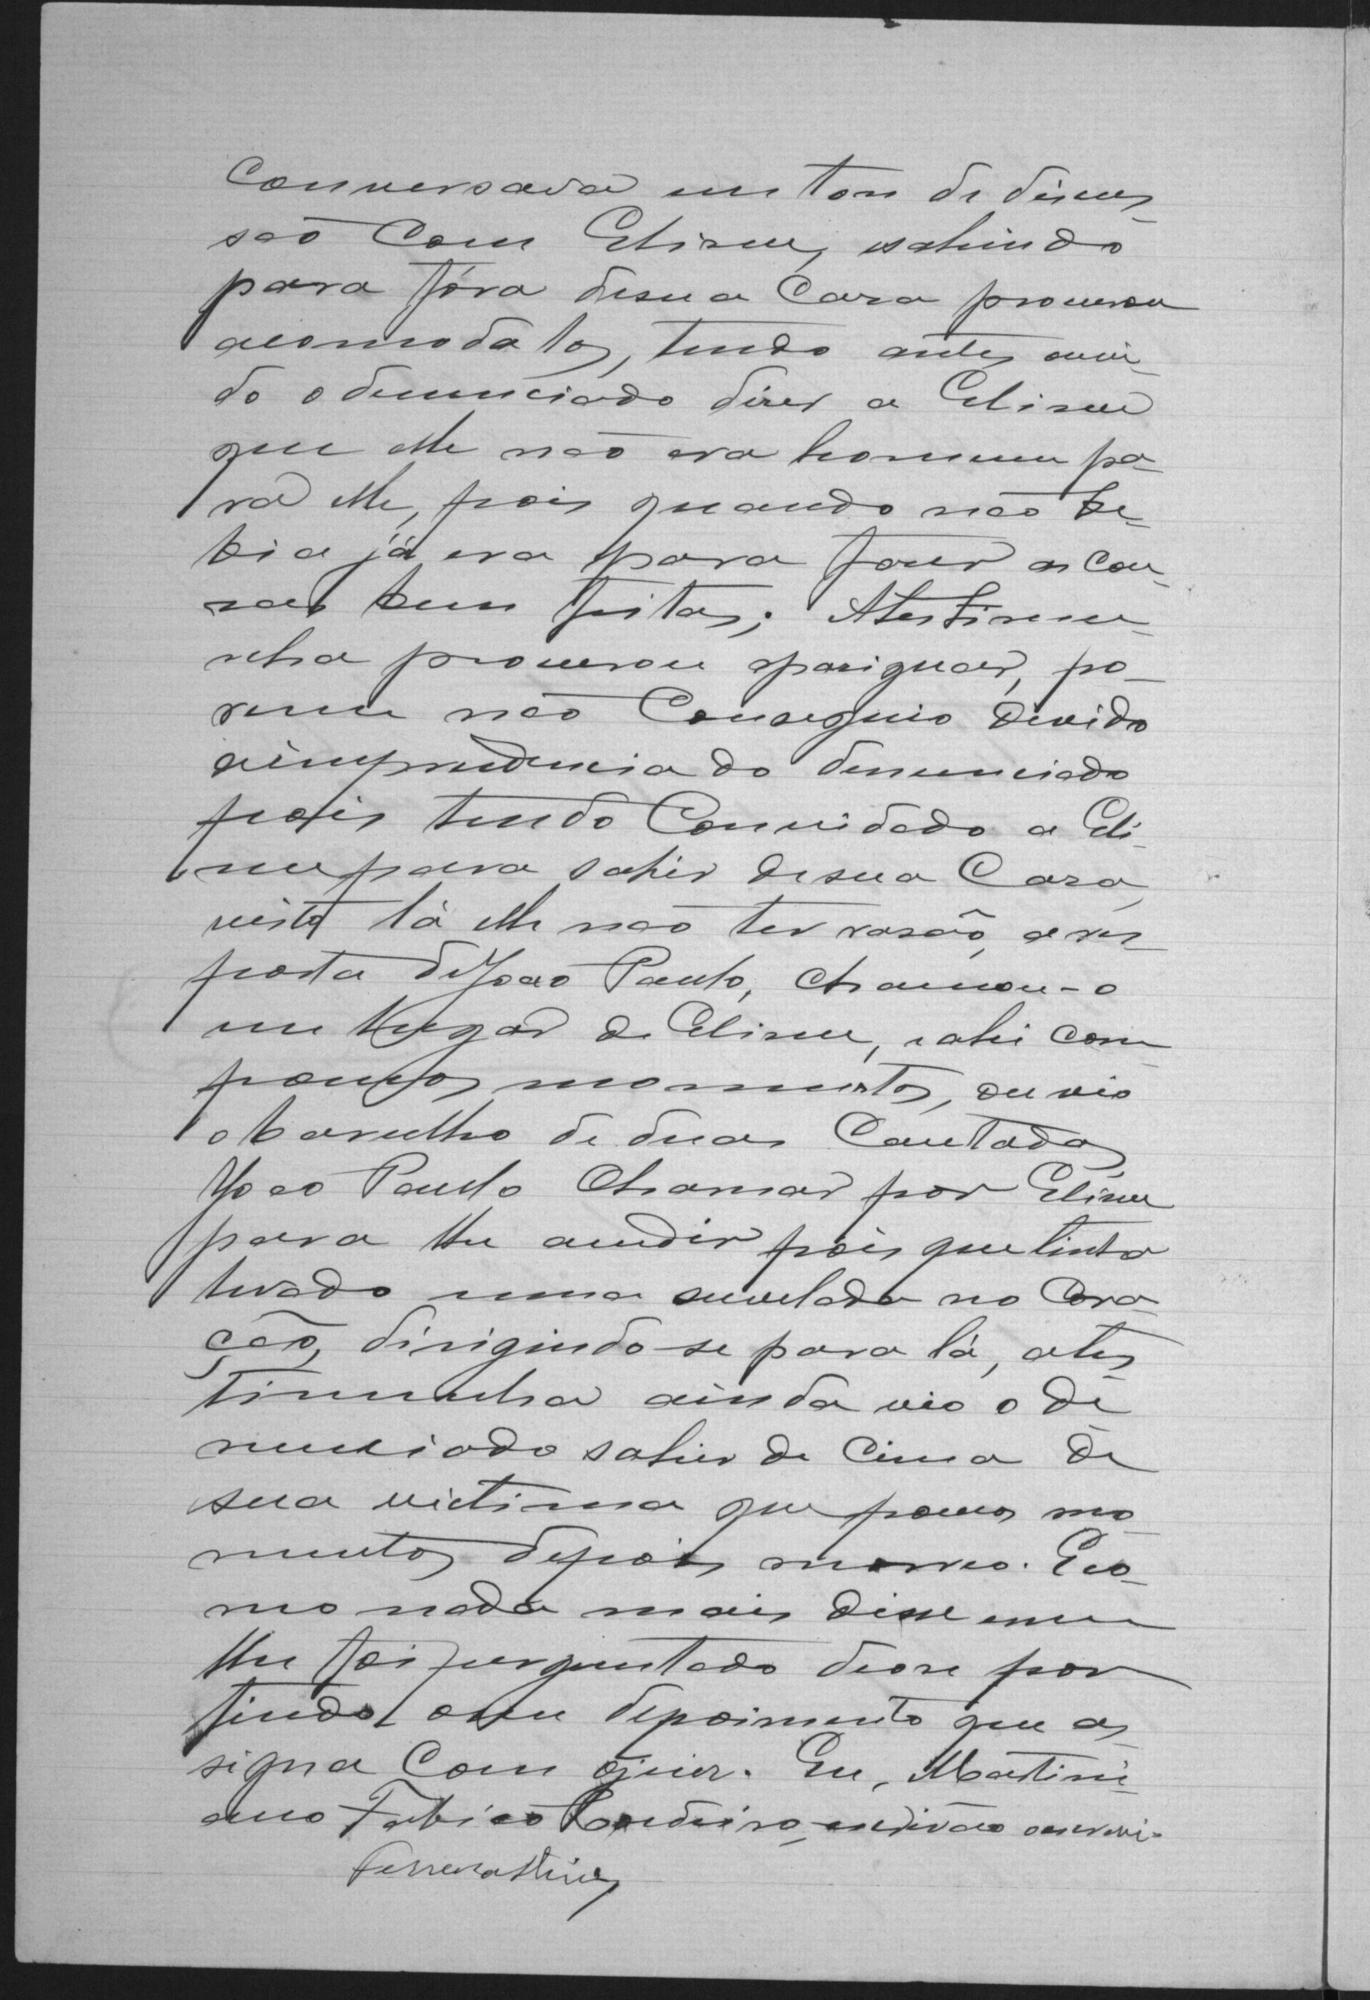 Conversava em tom de discus
são com Eliseu, sahindo
para fóra de sua Casa procurou
acomodalos, tendo antes ouvi-
do o denunciado dizer a Eliseu
que elle não era homem pa-
ra elle, pois quando não be-
bia já era para fazer as cou-
sas bem feitas; Atestimu-
nha procurou apasiguar, po-
rem não Conseguio devido
a imprudencia do denunciado
pois tendo Convidado a Eli-
seu para sahir de sua Casa,
visto lá elle não ter rasão, a res
posta de João Paulo, chamou-o
em lugar de Eliseu, e ahi com
poucos momentos, ouvio
o barulho de duas Cacetadas
João Paulo Chamar por Eliseu
para lhe acudir pois que tinha
levado uma suvelada no Cora-
ção, dirigindo-se para lá, ates
timunha ainda vio o de
nunciado sahir de cima de
sua victima que poucos mo-
mentos depois morreo. E co-
mo nada mais disse e nem
lhe foi perguntado deose por
findo o seu depoimento que as
signa com o juiz. Eu, Martini
ano Fabião Cordeiro, escrivão o escrevi.